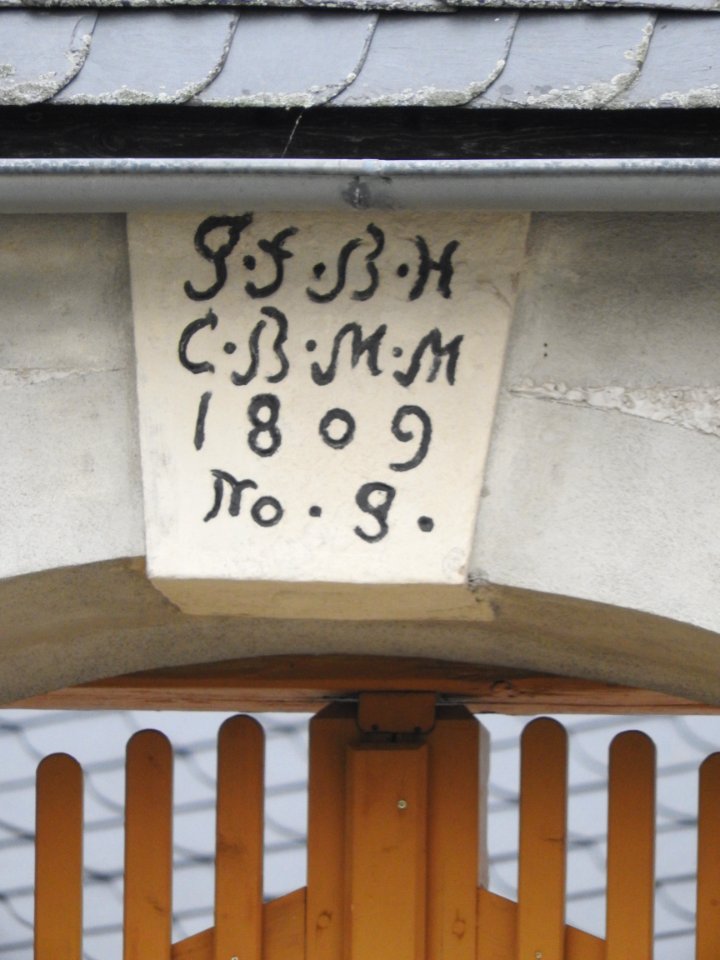 J·F·B·H
C·B·M·M
1809
No·9.